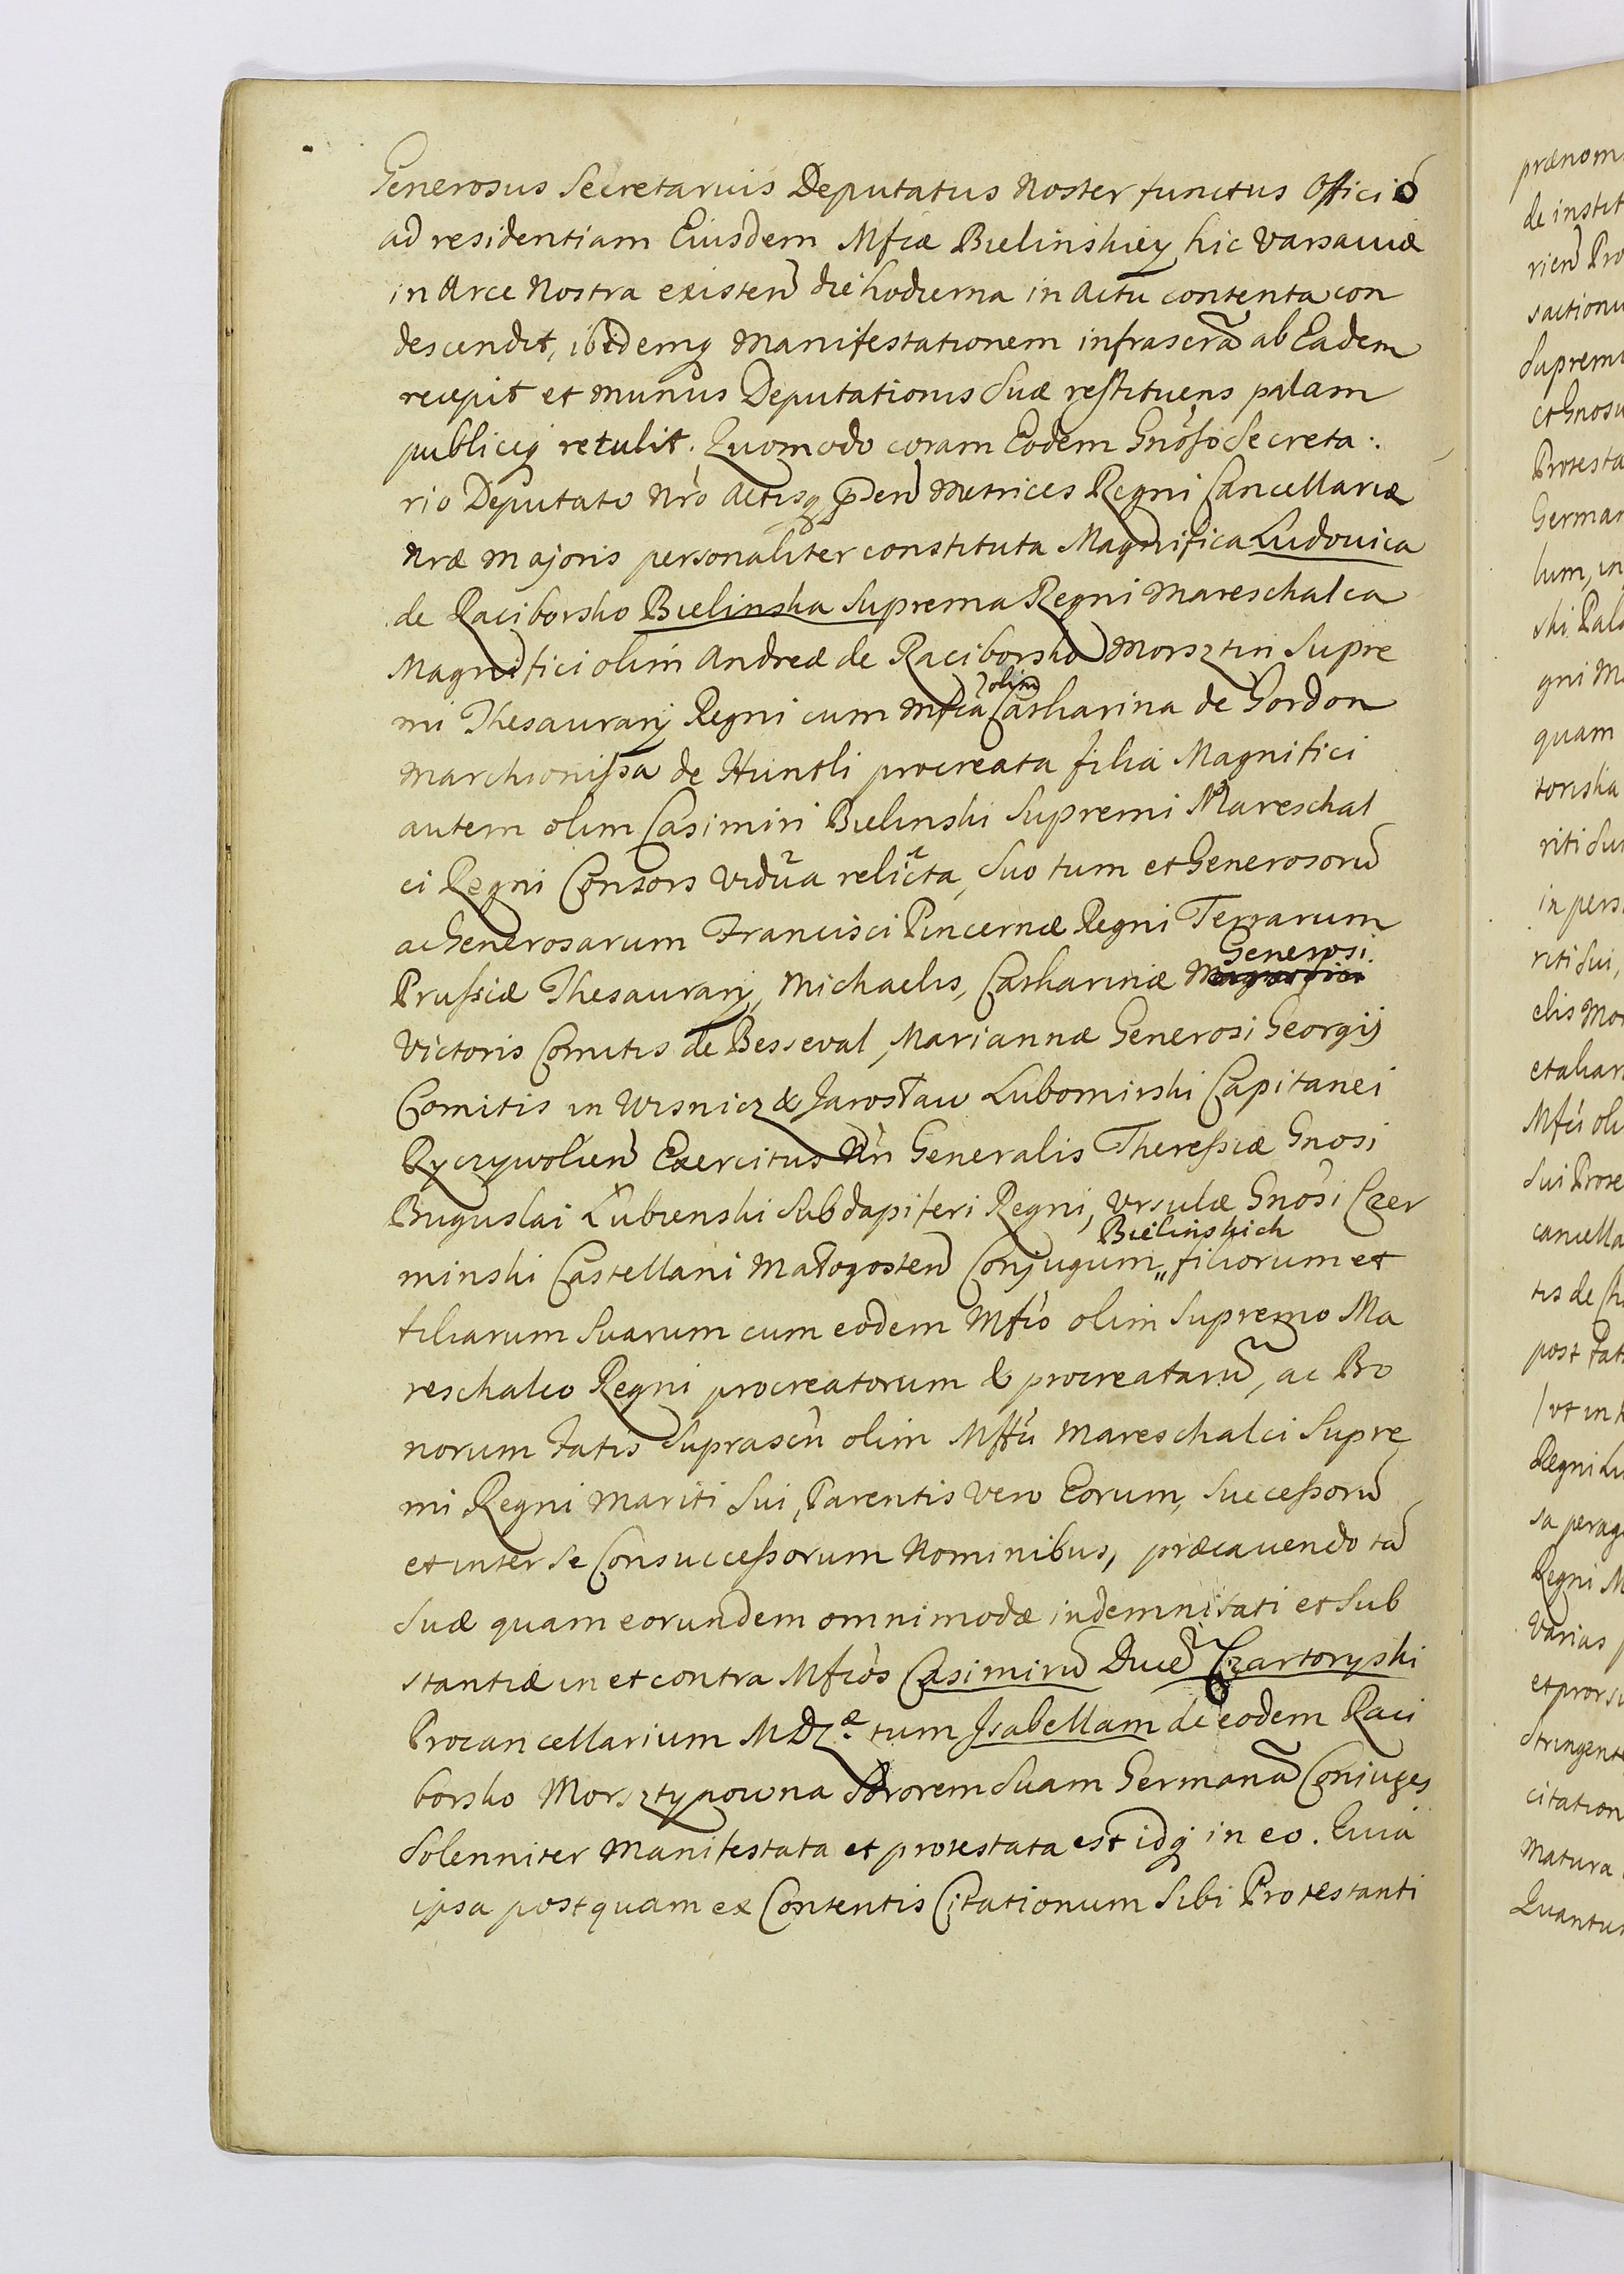 Generosus Secretarius Deputatus Noster functus Officiõ
ad residentiam Eiusdem Mfcæ Bielinskiey hic Varsauiæ
in Arce Nostra existeñ die hodierna in Actu contenta con
descendit, ibidemq Manifestationem infrascrã ab Eadem
recepit et munus Deputationis Suæ restituens palam
publiceq retulit. Quomodo coram Eodem Gnoso Secreta:
rio Deputato Nro Actisq pñ Metrices Regni Cancellariæ
Nræ Majoris personaliter constituta Magnifica Ludouica
de Raciborsko Bielinska Suprema Regni Mareschalca
Magnifici olim Andreæ de Raciborsko Morsztin Supre
mi Thesaurarij Regni cum Mfca olim Catharina de Gordon
Marchionissa de Huntli procreata filia Magnifici
autem olim Casimiri Bielinski Supremi Mareschal
ci Regni Consors Vidua relicta, Suo tum et Generosorũ
ac Generosarum Francisci Pincernæ Regni Terrarum
Prussiæ Thesaurarij, Michaelis, Catharinæ Generosi
Victoris Comitis de Besseval, Mariannæ Generosi Georgij
Comitis in Wisnicz & Jarosław Lubomirski Capitanei
Ryczywolieñ Exercitus Nri Generalis Theressiæ Gnosi
Buguslai Łubienski Subdapiferi Regni, Vrsulæ Gnosi Czer
minski Castellani Małogosteñ Conjugum Bielinskich filiorum et
filiarum Suarum cum eodem Mfco olim Supremo Ma
reschalco Regni procreatorum & procreatarũ, ac Bo
norum Fatis Suprascri olim Mffci Mareschalci Supre
mi Regni Mariti Sui, Parentis Vero Eorum, Successorũ
et inter se Consuccessorum Nominibus, præcauendo tã
Suæ quam eorundem omnimodæ indemnitati et Sub
stantiæ in et contra Mfcos Casimirũ Ducẽ Czartoryski
Procancellarium M D Læ tum Isabellam de eodem Raci
borsko Morsztynowna Sororem Suam Germanã Coniuges
Solenniter Manifestata et protestata est idq in eo. Quia
ipsa postquam ex Contentis Citationum Sibi Protestanti